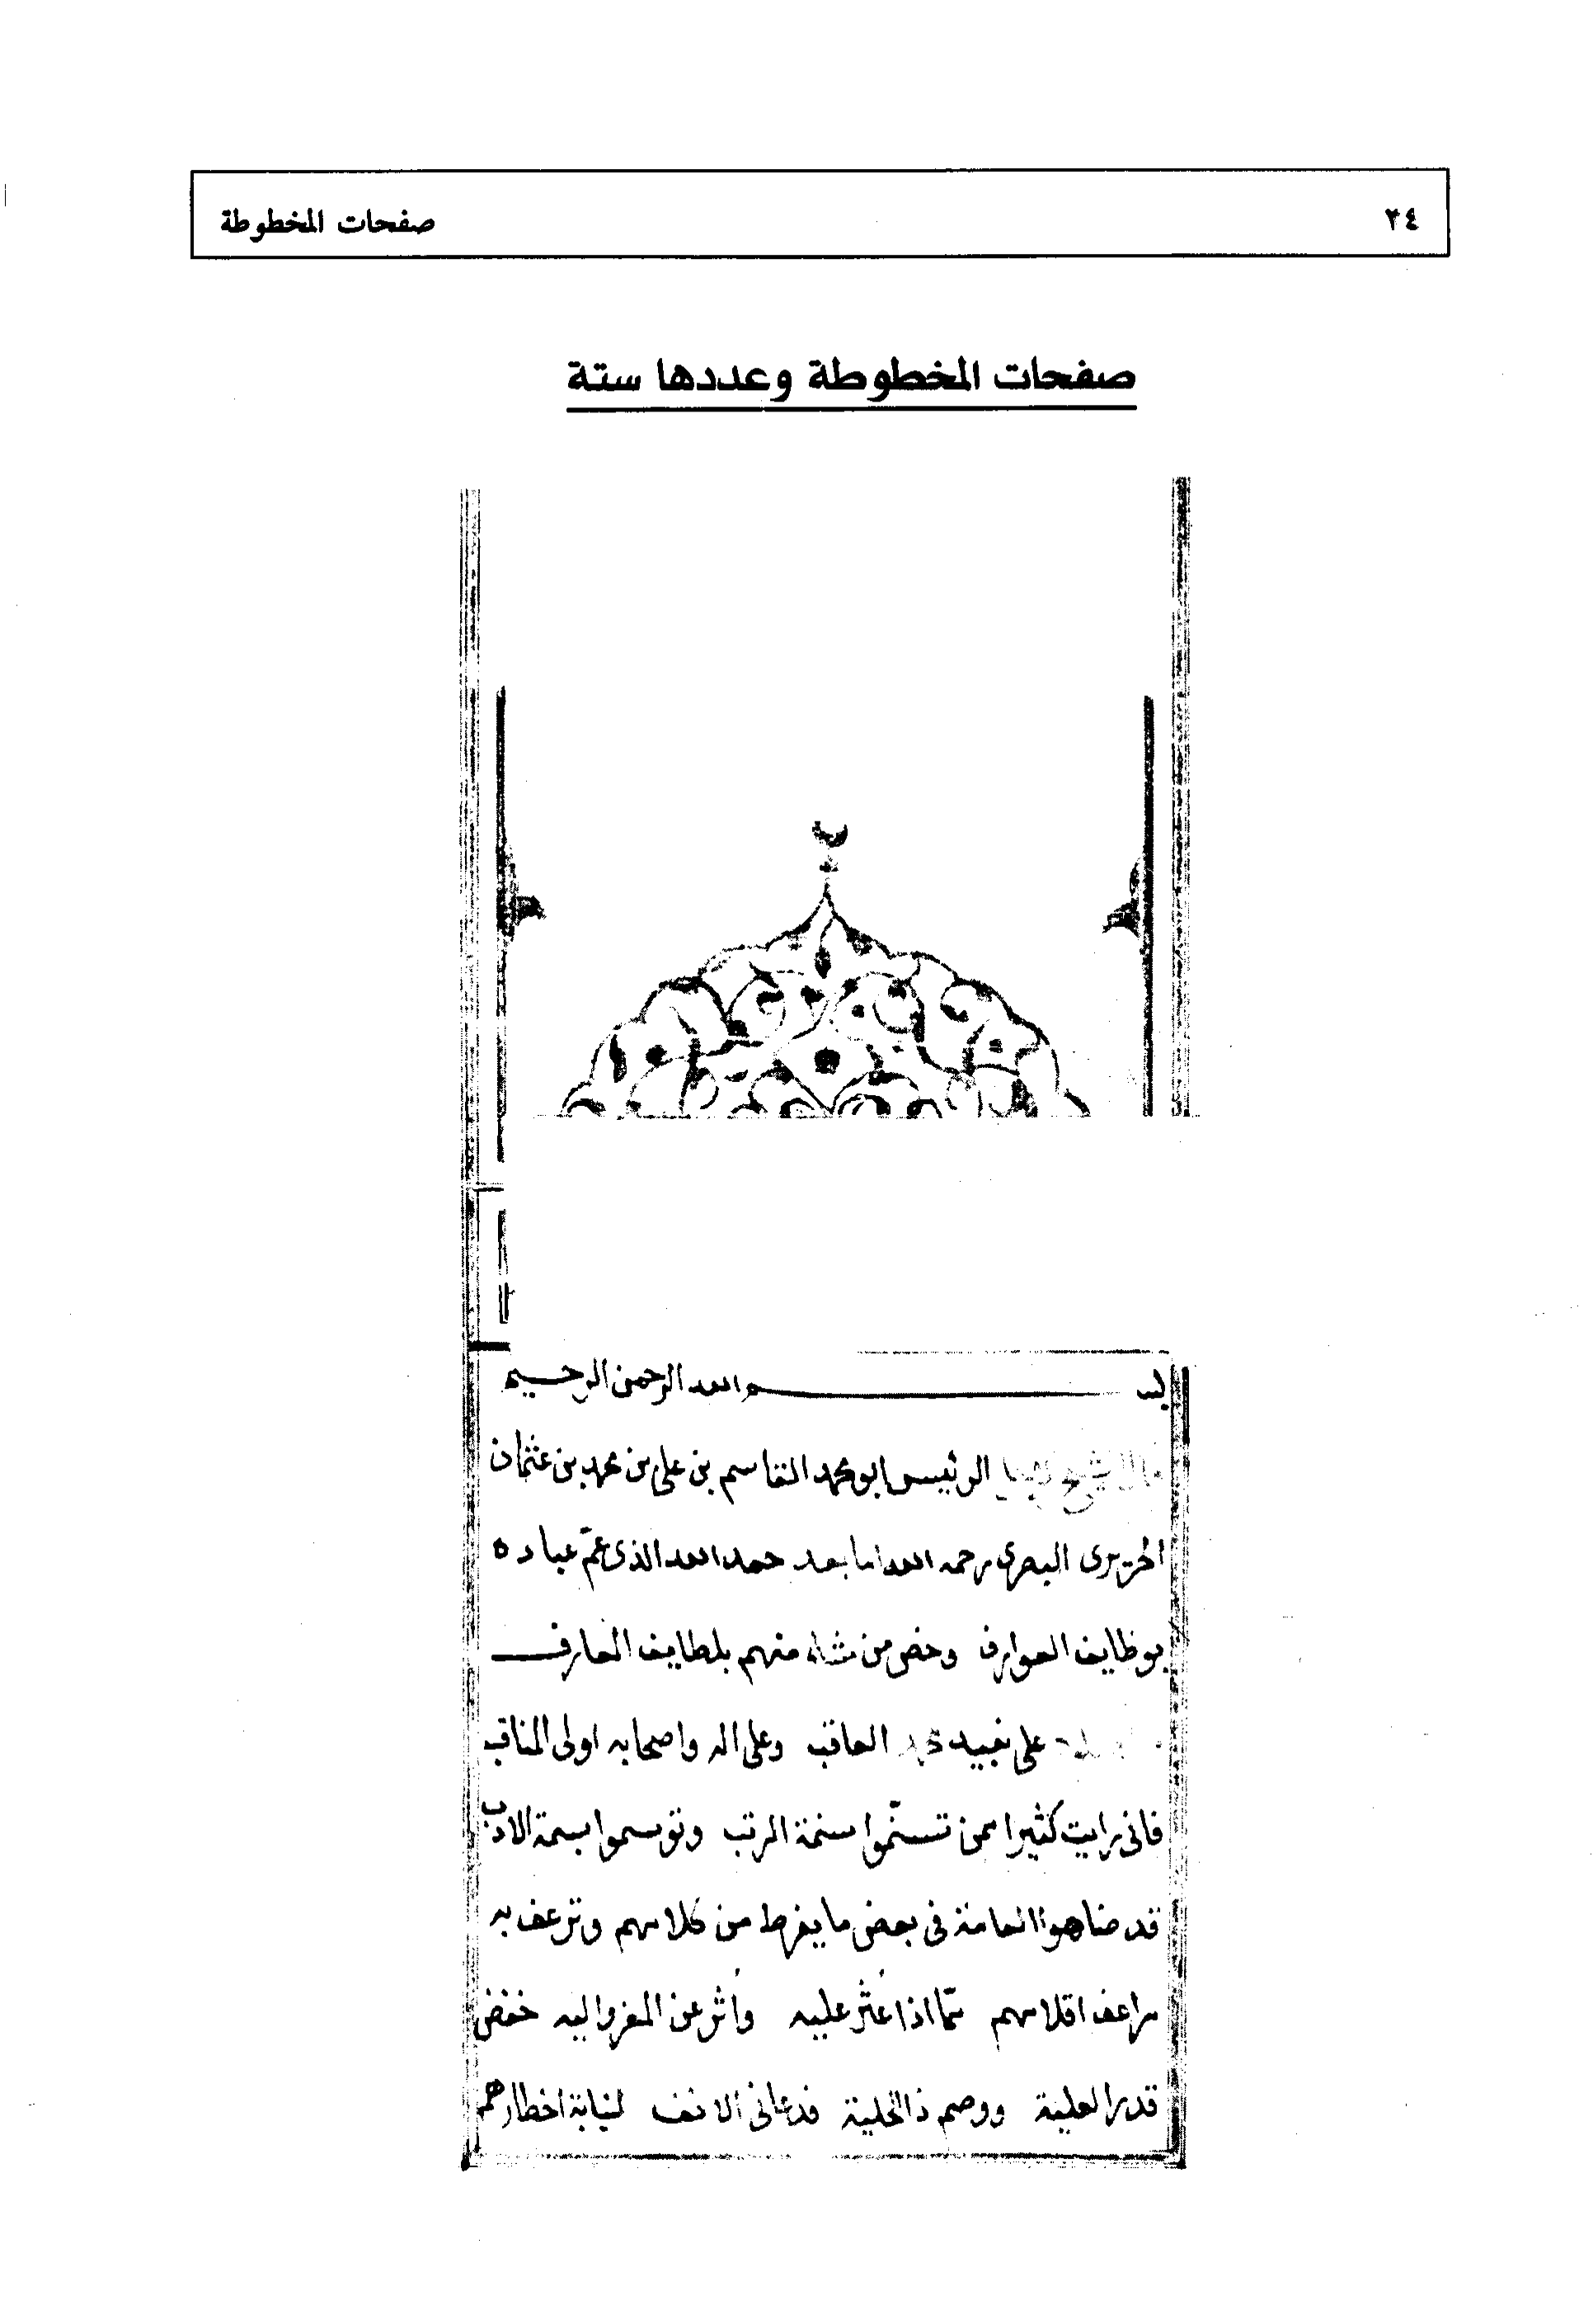 ٢٤
صفحات المخطوطة
صفحات المخطوطة وعددها ستة
بسم الله الرحمن الرحيم
الرئيس ابو محمد القاسم بن على بن محمد بن عثمان
الحريرى البصرى رحمه الله اما بعد حمد الله الذى عمّ عباده
بوظايف العوارف وخص من شاء منهم بلطايف المعارف
على نبيه محمد العاقب وعلى اله واصحابه اولى المناقب
فانى رايت كثيرا ممن تسنّموا سنمة الرتب وتوسموا بسمة الادب
قد ضاهوا العامة فى بعض ما يفرط من كلامهم وترعف به
مراعف اقلامهم ممّا اذا عُثر عليه وأُثر عن المعزو اليه خفض
قدر العلية ووصم ذا الحلية فدعانى الانف لنباهة اخطارهم